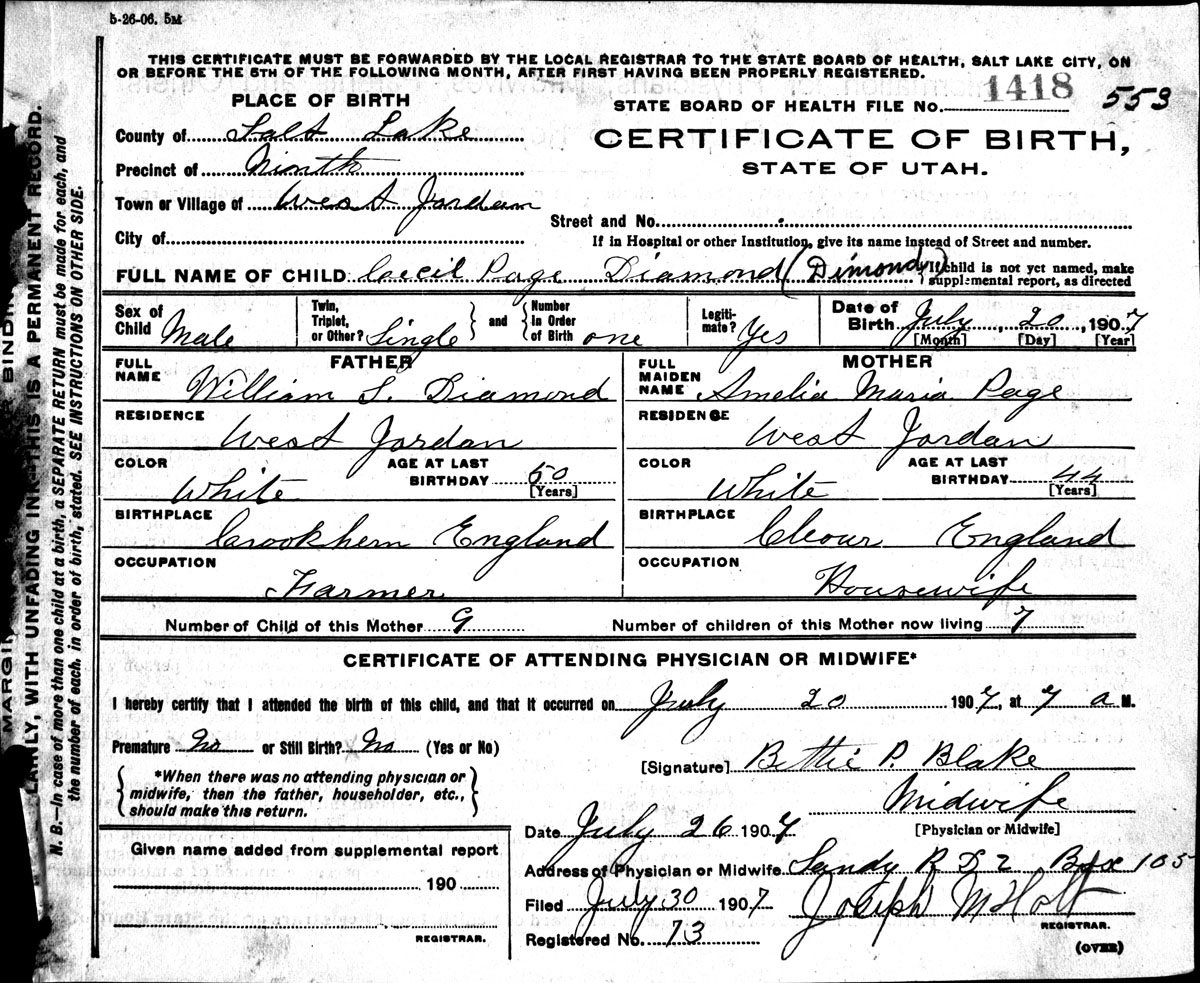 5-26-06. 5M
THIS CERTIFICATE MUST BE FORWARDED BY THE LOCAL REGISTRAR TO THE STATE BOARD OF HEALTH, SALT LAKE CITY, ON
OR BEFORE THE 5TH OF THE FOLLOWING MONTH, AFTER FIRST HAVING BEEN PROPERLY REGISTERED.
PLACE OF BIRTH
STATE BOARD OF HEALTH FILE No. 1418 553
County of Salt Lake
CERTIFICATE OF BIRTH,
STATE OF UTAH.
Precinct of Ninth
Town or Village of West Jordan
Street and No.
City of
If in Hospital or other Institution, give its name instead of Street and number.
FULL NAME OF CHILD Cecil Page Diamond (Dimond) If child is not yet named, make supplemental report, as directed
Sex of Child Male Twin, Triplet, or Other? Single and Number in Order of Birth one Legitimate? Yes Date of Birth July, 20, 1907
[Month] [Day] [Year]
FATHER MOTHER
FULL NAME William S. Diamond FULL MAIDEN NAME Amelia Maria Page
RESIDENCE West Jordan RESIDENCE West Jordan
COLOR White AGE AT LAST BIRTHDAY 50 [Years] COLOR White AGE AT LAST BIRTHDAY 44 [Years]
BIRTHPLACE Crookhern England BIRTHPLACE England
OCCUPATION Farmer OCCUPATION Housewife
Number of Child of this Mother 9 Number of children of this Mother now living 7
CERTIFICATE OF ATTENDING PHYSICIAN OR MIDWIFE*
I hereby certify that I attended the birth of this child, and that it occurred on July 20 1907, at 7 a M.
Premature No or Still Birth? No (Yes or No)
[Signature] Bettie P. Blake
*When there was no attending physician or
midwife, then the father, householder, etc.,
should make this return.
Midwife
[Physician or Midwife]
Date July 26 1907
Given name added from supplemental report
190
REGISTRAR.
Address of Physician or Midwife Sandy R D 2 Box 105
Filed July 30 1907 Joseph M Holt
REGISTRAR.
Registered No. 73
(OVER)
MARGIN BINDIN
LAINLY, WITH UNFADING INK—THIS IS A PERMANENT RECORD.
N. B.—In case of more than one child at a birth, a SEPARATE RETURN must be made for each, and
the number of each, in order of birth, stated. SEE INSTRUCTIONS ON OTHER SIDE.